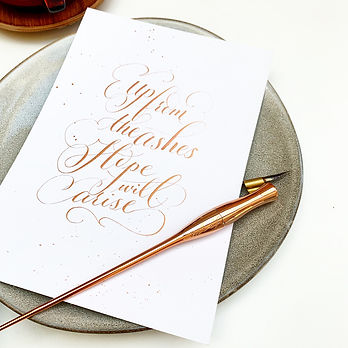 up from
the ashes
Hope
will
arise